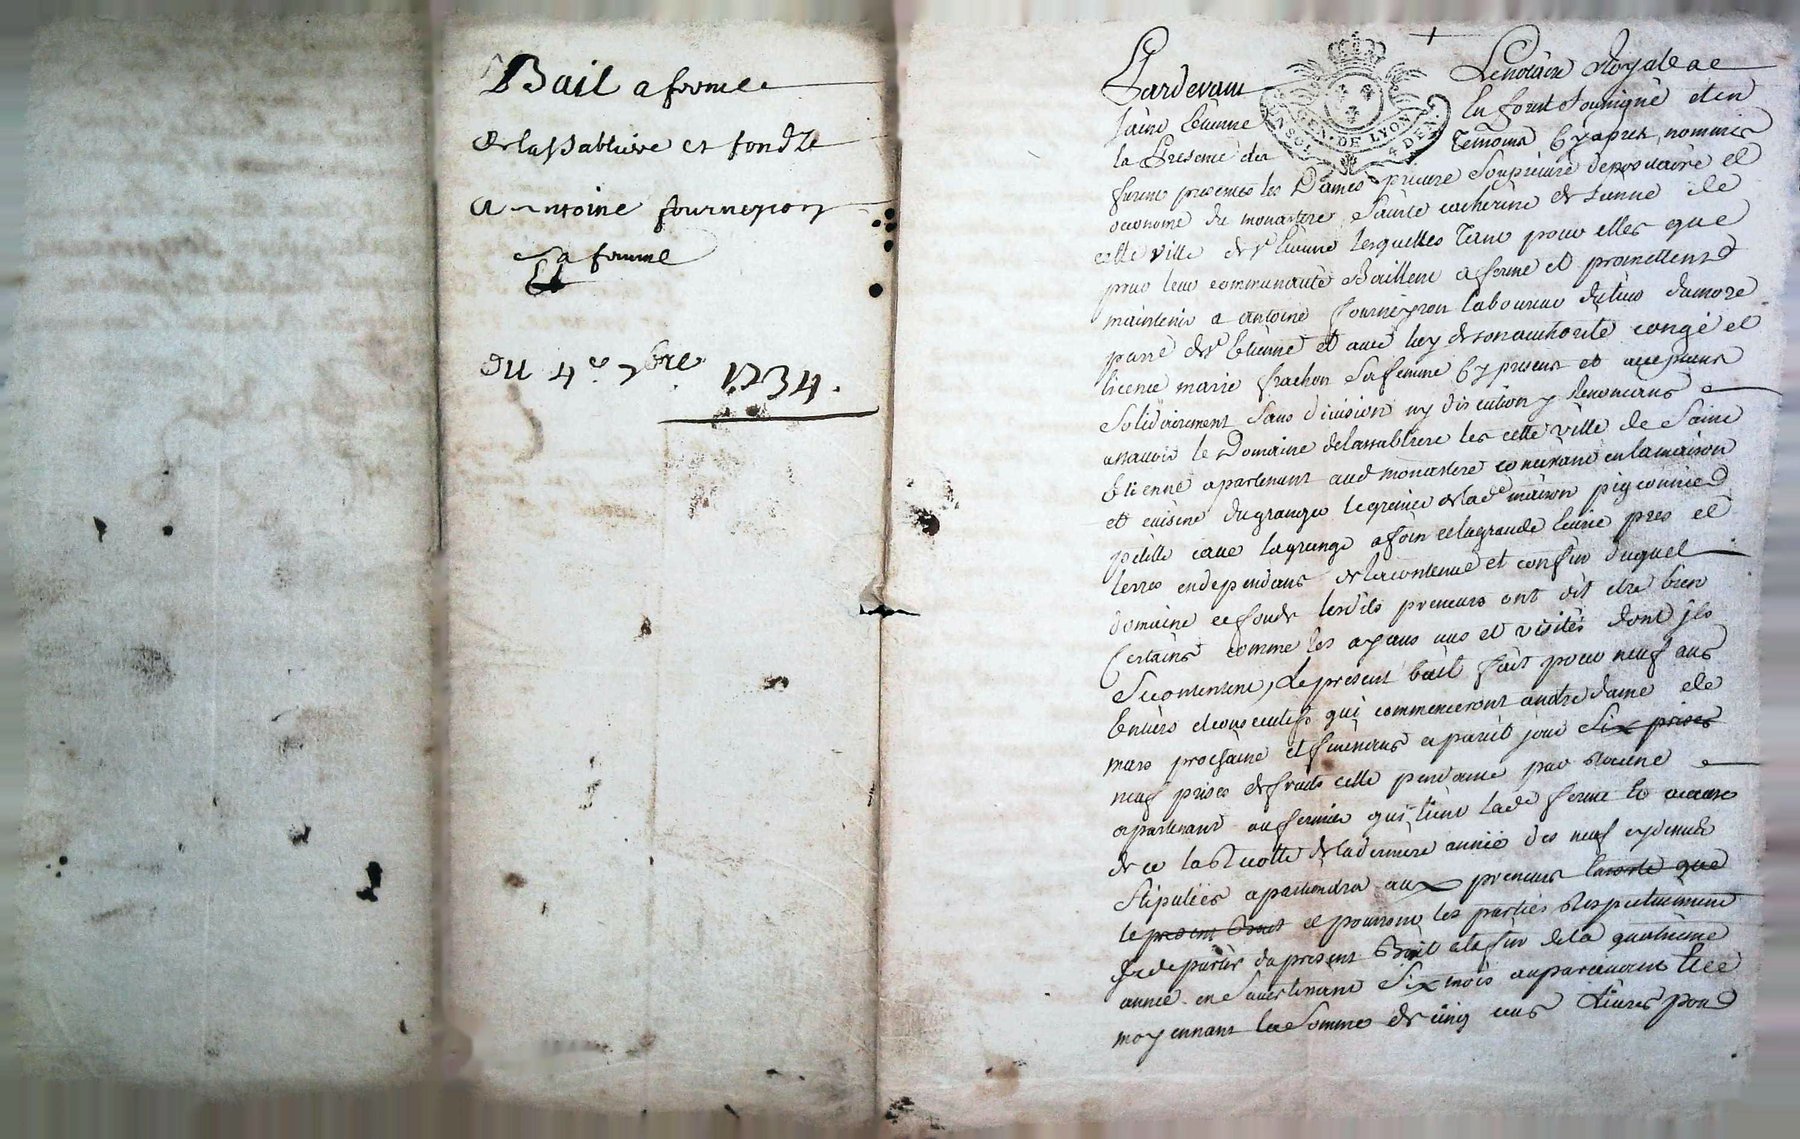 Bail a ferme
de la Sabliere et fond de
Antoine fourneyron
Sa femme
Et
Du 4e 7bre 1734.
GEN. DE LYON
4 DEN
Pardevant Le notaire Royal de
Saint Etienne En forest Soussigné et en
la presence des temoins Cy apres nommés
furent presentes les Dames prieure Souprieure depositaire et
oeconome du monastere Sainte catherine de Sienne de
cette ville de St Etienne lesquelles tant pour elles que
pour leur communauté Baillent a ferme et promettent
maintenir a antoine fourneyron laboureur du lieu
parre de St Etienne et avec luy de son authorité congé et
licence marie frachon Sa femme Cy presens et acceptans
Solidairement Sans division ny discution y Renoncans
assavoir le Domaine de lassabliere les cette ville de Saint
Etienne apartenant aud monastere concistant en la maison
et cuisine du granger le grenier de lade maison pigeonnier
petitte cave la grange a foin et la grande Ecurie pres et
terres endependans de la contenue et confin duquel
domaine et fonds lesdits preneurs ont dit etre bien
Certains comme les ayans vus et visités dont ils
Se contentent, Le present bail fait pour neuf ans
Entiers et consecutifs qui commenceront a notre dame de
mars prochaine et finirons a pareil jour Six prises
neuf prises de fruits celle pendante par Racine
apartenant au fermier qui tient lade ferme
de ce la Recolte de la derniere année des neuf cy dessus
Stipulées apartiendra aux preneurs que
le present Bail et pourront les parties Respectivement
Se departir du present Bail a la fin de la quatrieme
année en Savertissant Six mois auparavant
moyennant la Somme de cinq cens Livres pour